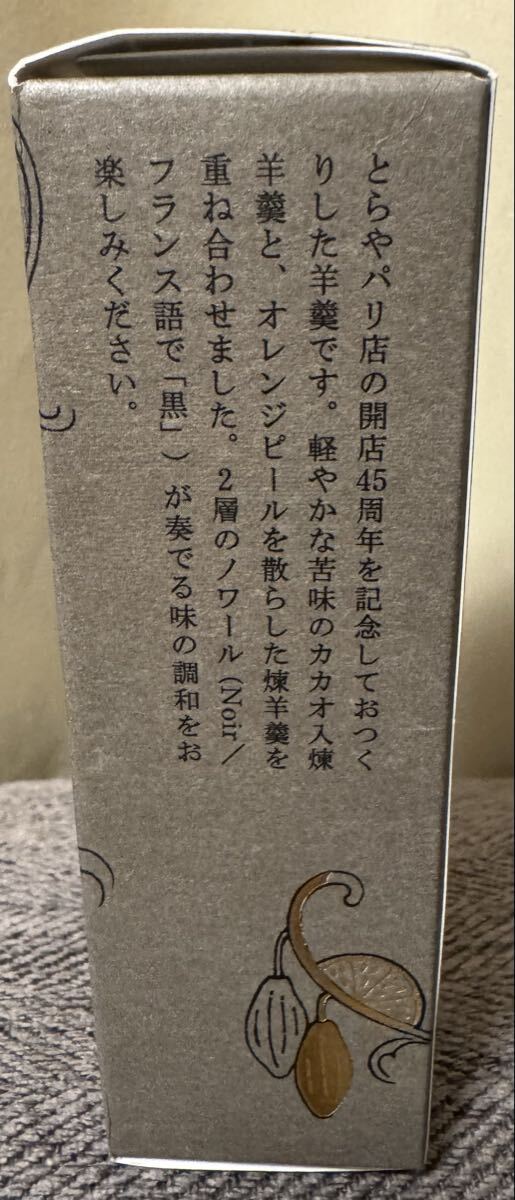 とらやパリ店の開店45周年を記念しておつく
りした羊羹です。軽やかな苦味のカカオ入煉
羊羹と、オレンジピールを散らした煉羊羹を
重ね合わせました。2層のノワール(Noir／
フランス語で「黒」）が奏でる味の調和をお
楽しみください。